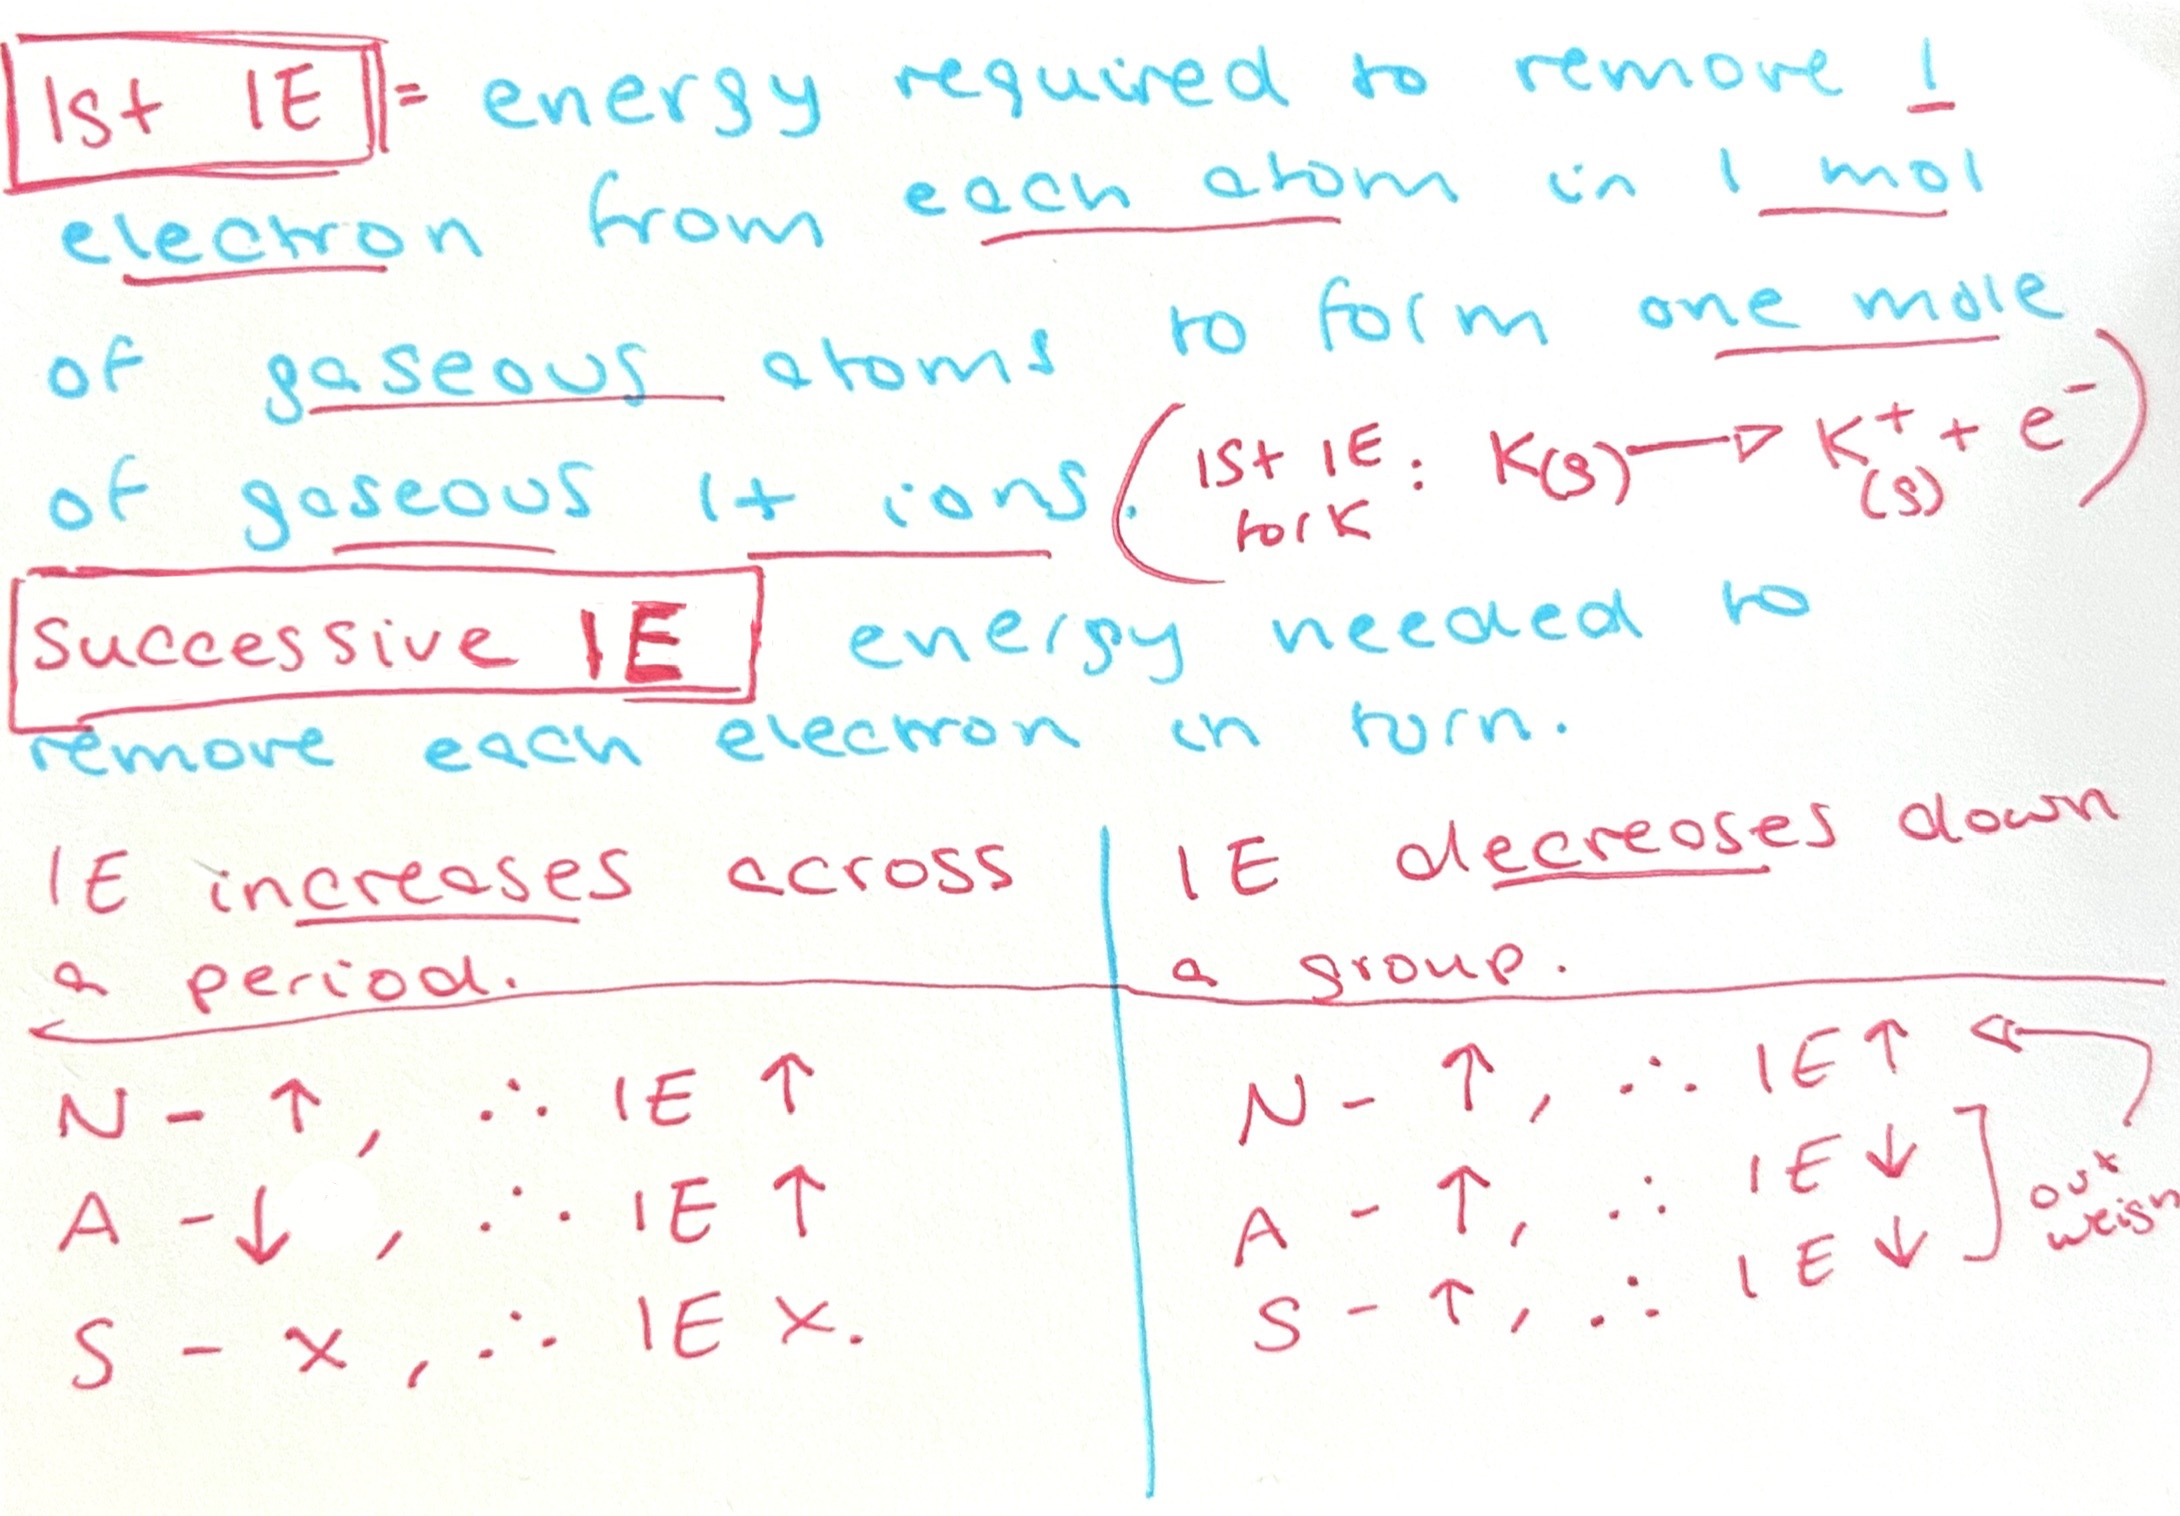 1st IE = energy required to remove 1
electron from each atom in 1 mol
of gaseous atoms to form one mole
of gaseous 1+ ions. (1st IE for K : K(g) → K⁺(g) + e⁻)
Successive IE energy needed to
remove each electron in turn.
IE increases across
a period.
N - ↑, ∴ IE ↑
A - ↓, ∴ IE ↑
S - x, ∴ IE x.
IE decreases down
a group.
N - ↑, ∴ IE ↑
A - ↑, ∴ IE ↓
S - ↑, ∴ IE ↓
out
weigh